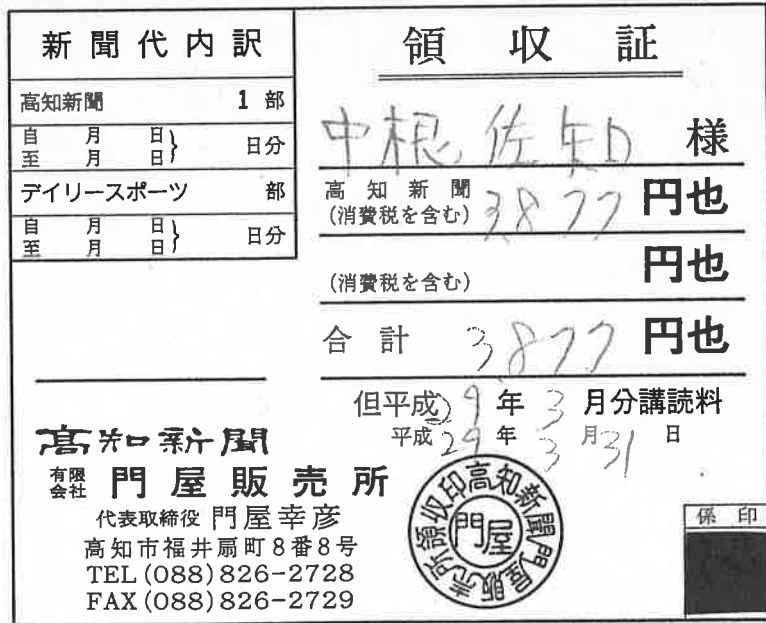 新聞代内訳
高知新聞 1 部
自 月 日
至 月 日} 日分
デイリースポーツ 部
自 月 日
至 月 日} 日分
領収証
中根佐知 様
高知新聞
(消費税を含む) 3877 円也
(消費税を含む) 円也
合計 3877 円也
但平成29年3月分講読料
平成29年3月31日
高知新聞
有限会社 門屋販売所
代表取締役 門屋幸彦
高知市福井扇町8番8号
TEL(088)826-2728
FAX(088)826-2729
高知新聞門屋販売所領収印
門屋
係印